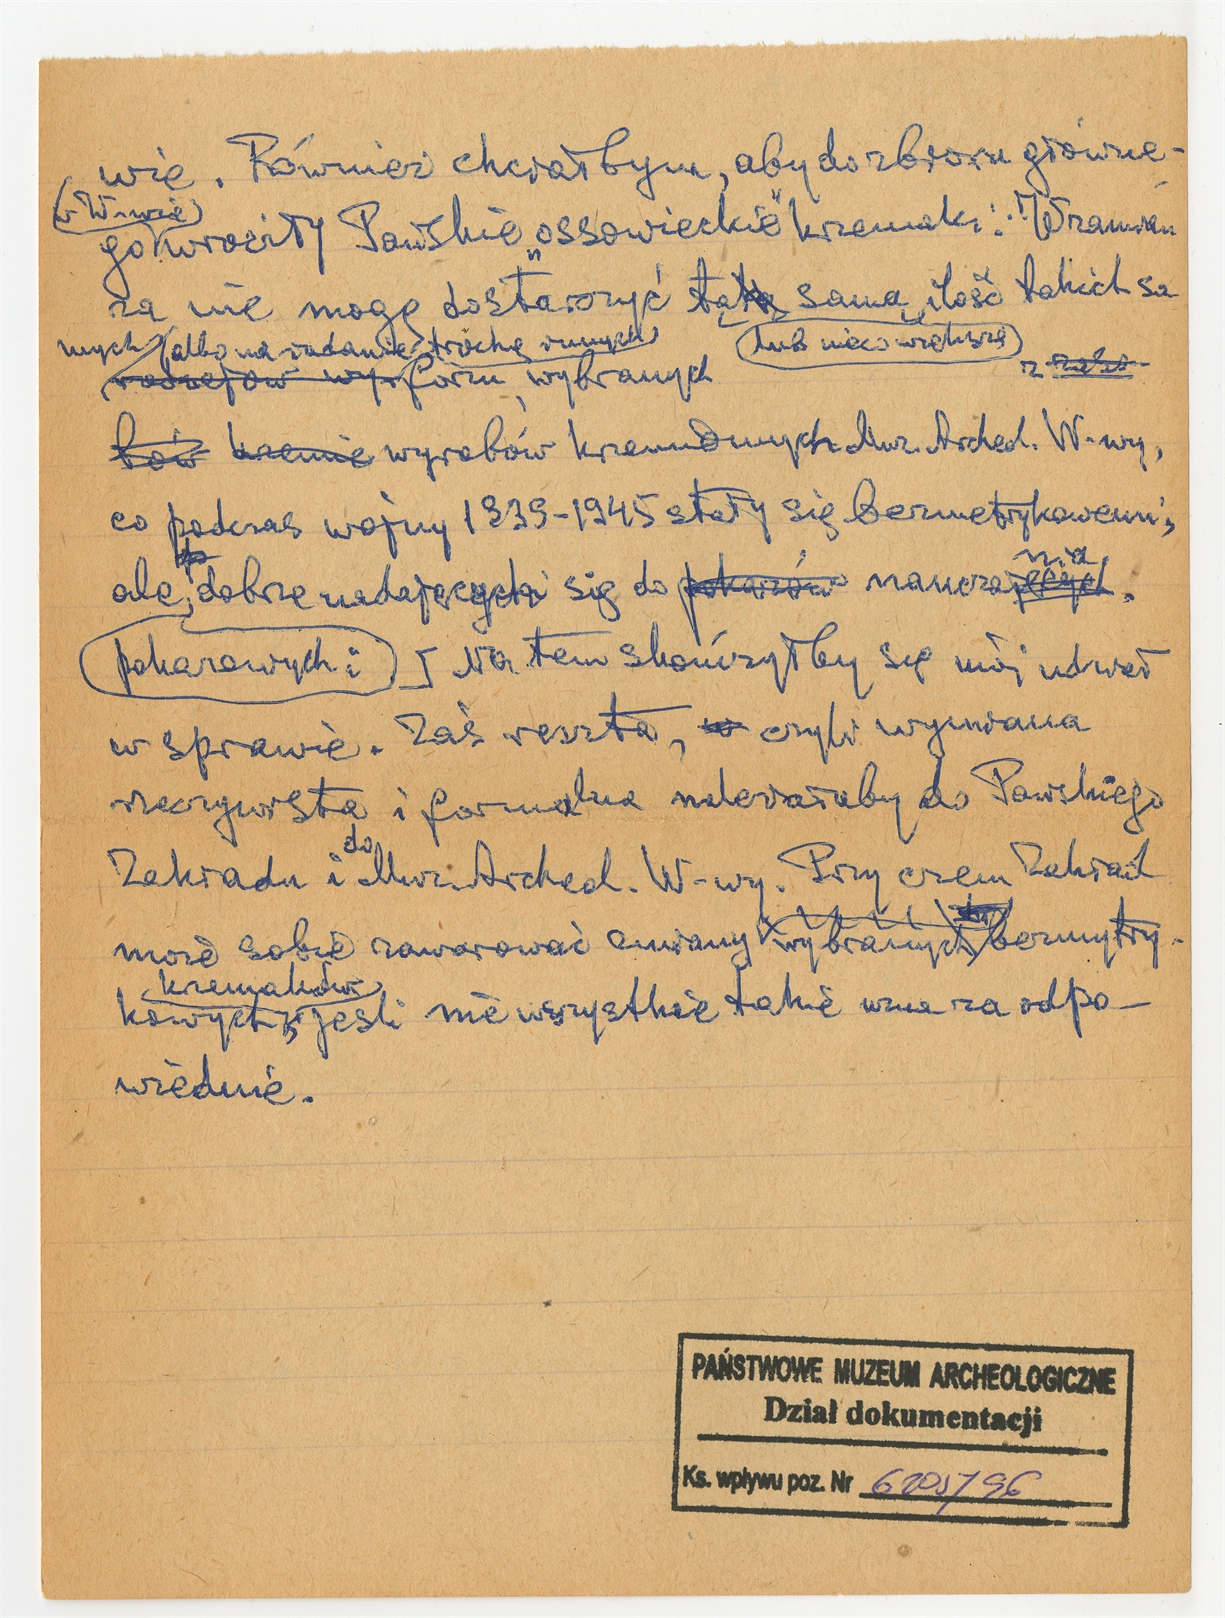 wie. Również chciałbym, aby do zbioru główne-
(w W-wie)
go wróciły Pańskie „ossowieckie" krzemaki. W zamian
za nie mogę dostarczyć taką samą ilość takich sa
mych (albo na żądanie trochę innych) (lub nieco większą)
rodzajów form wybranych z zaso
bów krzemie wyrobów krzemiennych Muz. Archeol. W-wy,
co podczas wojny 1939-1945 stały się bezmetrykowemi,
nia
ale dobrze nadających się do pokazów naucza
pokazowych i ] Na tem skończyłby się mój udział
w sprawie. Zaś reszta, czyli wymiana
rzeczywista i formalna należałaby do Pańskiego
do
Zakładu i Muz. Archeol. W-wy. Przy czem Zakład
może sobie zawarować zmiany wybranych bezmytry-
krzemaków
kowych, jeśli nie wszystkie takie uzna za odpo-
wiednie.
PAŃSTWOWE MUZEUM ARCHEOLOGICZNE
Dział dokumentacji
Ks. wpływu poz. Nr 6205/96